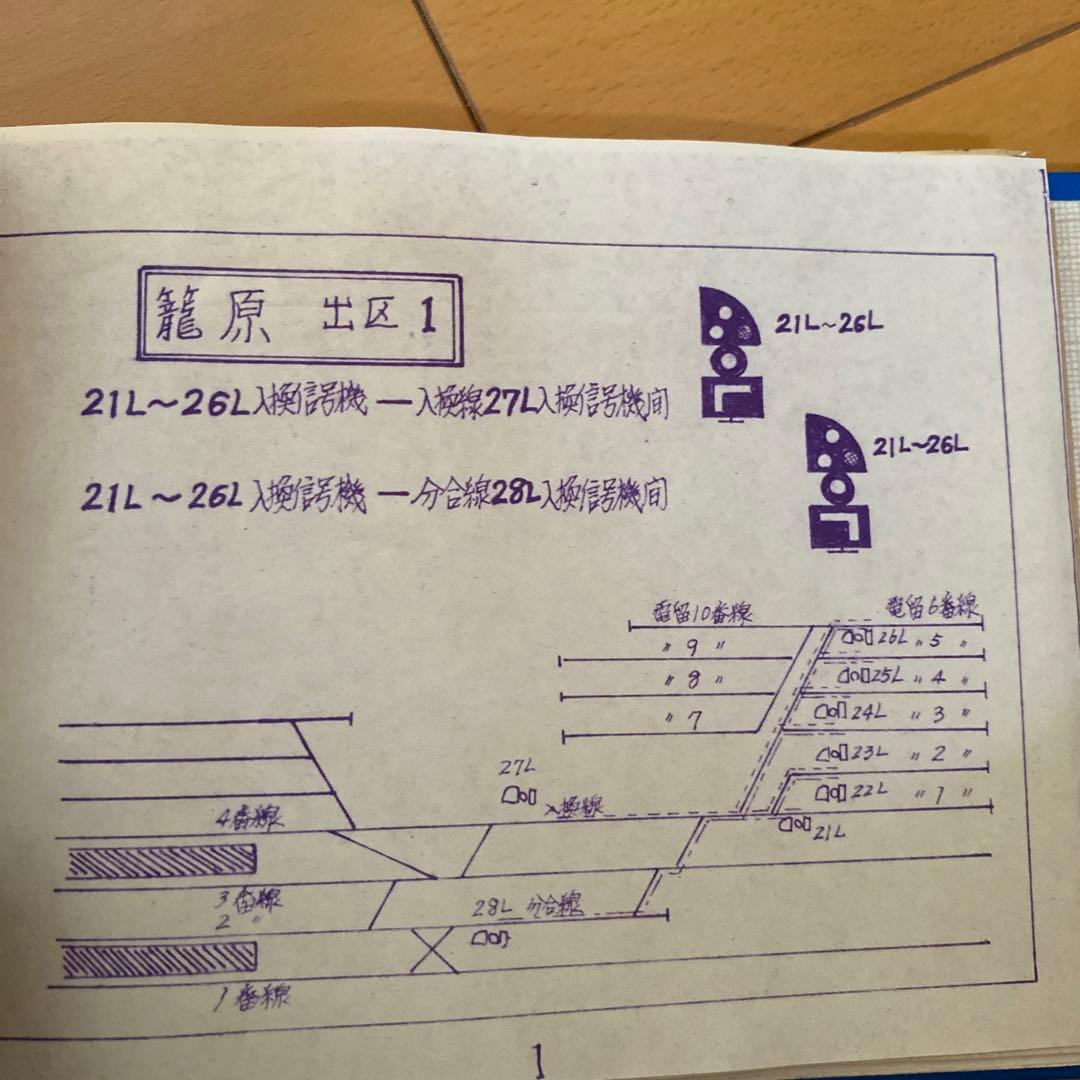 籠原 出区1
21L〜26L
21L〜26L入換信号機 ― 入換線27L入換信号機間
21L〜26L
21L〜26L入換信号機 ― 分合線28L入換信号機間
電留10番線
〃 9 〃
〃 8 〃
〃 7
電留6番線
26L 〃 5 〃
25L 〃 4 〃
24L 〃 3 〃
23L 〃 2 〃
22L 〃 1 〃
21L
27L
入換線
4番線
3番線
2 〃
28L 分合線
1番線
1